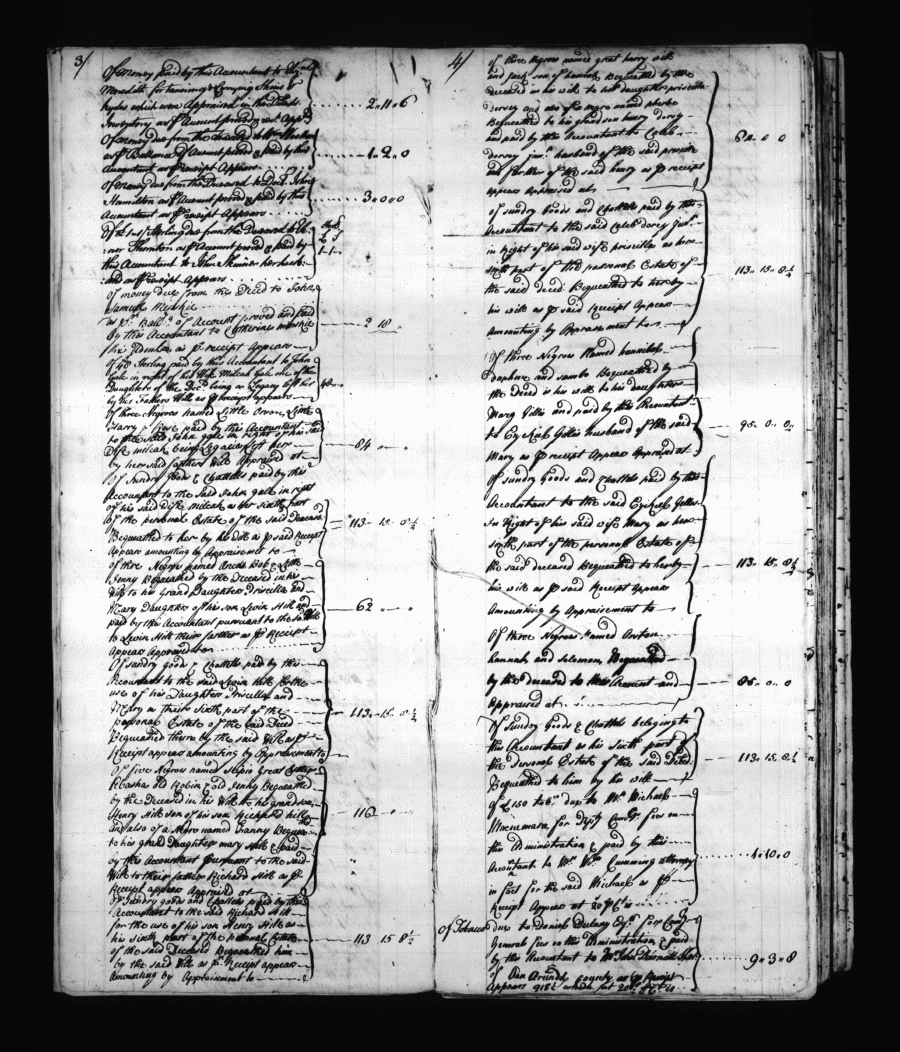 3/
Of money paid by this Accountant to
Meredith for tanning & Currying Skins &
hydes which were Appraised in the Deced.
Inventory as pr. Account proved & rect. Appd.
2.. 11.. 6
Of money due from the deceased to
as pr. Ballance of Account proved & paid by this
Accountant as pr. receipt Appears
1.. 2.. 0
Of money due from the Deceased to Doct. John
Hamilton as pr. Account proved & paid by this
Accountant as pr. receipt Appears
3.. 0.. 0
Sterling due from the Deceased to
nor Thornton as pr. Account proved & paid by
this Accountant to
and as pr. receipt Appears
of money due from the Deced to John
Samuel Minskie
as pr. Ballce. of Account proved and paid
by this Accountant to Catherine Minskie
his as pr. receipt Appears
2 18
Of 40 Sterling paid by this Accountant to John
Gale in right of his Wife Milcah Gale one of the
Daughters of the Decd. being a Legacy left her
by her Fathers Will as pr. receipt appears
40
Of three Negroes named Little Orson, Little
Harry & Rose paid by this Accountant
to the said John Gale in right of his said
Wife Milcah being a Legacy left her
by her said fathers Will Appraised at
84 " "
Of Sundry Goods & Chattels paid by this
Accountant to the said John Gale in right
of his said Wife Milcah as her sixth part
of the personal Estate of the said Deceased
Bequeathed to her by his Will as pr. said Receipt
Appears amounting by Appraisement to
113 15 8½
of three Negroes named Bob & Little
Jenny Bequeathed by the Deceased in his
Will to his Grand Daughters Priscilla and
Mary Daughters of his son Levin Hill and
paid by this Accountant pursuant to the said Will
to Levin Hill their father as pr. Receipt
Appears Appraised at
62 " "
Of Sundry goods & Chattels paid by this
Accountant to the said Levin Hill for the
use of his Daughters Priscilla and
Mary as their sixth part of the
personal Estate of the said Deced
Bequeathed them by the said Will as pr.
Receipt appears amounting by Appraisement to
113 15 8½
Of five Negroes named Scipio Great
old Robin & old Jenny Bequeathed
by the Deceased in his Will to his grandson
Henry Hill son of his son Richard Hill
and also of a Negro named Fanny Bequeathed
to his grand Daughter Mary Hill & paid
by this Accountant pursuant to the said
Will to their father Richard Hill as pr.
Receipt appears Appraised at
116 " "
Of Sundry goods and Chattels paid by this
Accountant to the said Richard Hill
for the use of his son Henry Hill as
his sixth part of the personal Estate
of the said Deceased Bequeathed him
by the said Will as pr. Receipt appears
Amounting by Appraisement to
113 15 8½
4/
of three Negroes named great harry
and Jack son of hannah Bequeathed by the
deceased in his will to his daughter priscilla
dorsey and also of a negro named phebe
Bequeathed to his grandson henry dorsey
and paid by this Accountant to Caleb
dorsey junr. husband of the said priscilla
and father of the said henry as pr. receipt
appears Appraised at
62.. 0 0
of Sundry Goods and Chattells paid by this
Accountant to the said Caleb dorsey Junr.
in Right of his said wife priscilla as her
sixth part of the personal Estate of
the said deced. Bequeathed to her by
his will as pr. said Receipt Appears
Amounting by Appraisement to
113.. 15.. 8½
Of three Negroes Named hannibal
daphne and sambo Bequeathed by
the deced in his will to his daughter
Mary Gillis and paid by this Accountant
to Ezekiel Gillis husband of the said
Mary as pr. receipt Appears Appraised at
95.. 0.. 0
Of Sundry Goods and Chattells paid by this
Accountant to the said Ezekiel Gillis
In Right of his said wife Mary as her
sixth part of the personal Estate of
the said deceased Bequeathed to her by
his will as pr. said Receipt Appears
Amounting by Appraisement to
113.. 15.. 8½
Of three Negroes Named
hannah and solomon Bequeathed
by the deceased to this Account and
Appraised at
86.. 0.. 0
Of Sundry Goods & Chattells belonging to
this Accountant as his sixth part of
the Personal Estate of the said deced.
Bequeathed to him by his will
113.. 15.. 8½
of £150 tobo. due to Mr. Michael
Macnemara for Depy. Comry. fees on
this Administration & paid by this
Accountant to Mr. Wm. Cumming attorney
in fact for the said Michael as pr.
Receipt Appears at 20 pr. Ct. is
1.. 10.. 0
Of Tobacco due to Daniel Dulany Esqr. for Comy.
General fees on this Administration & paid
by this Accountant to Mr.
of Ann Arundel County as pr. Receipt
Appears 918¼ which at 20s. pr. Ct. is
9.. 3.. 8